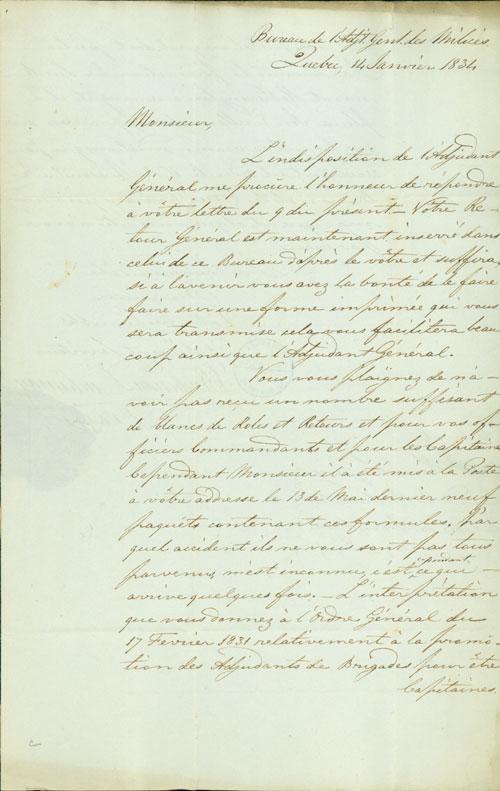 Bureau de l'Adjt. Genl. des Milices
Quebec, 14 Janvier 1834
Monsieur,
L'indisposition de l'Adjudant
Général me procure l'honneur de répondre
à vôtre lettre du 9 du présent. — Vôtre Re-
tour Général est maintenant inserré dans
celui de ce Bureau d'après le vôtre et suffira,
si à l'avenir vous avez la bonté de le faire
faire sur une forme imprimée qui vous
sera transmise cela vous facilitera beau
coup ainsi que l'Adjudant Général.
Vous vous plaignez de n'a-
voir pas reçu un nombre suffisant
de blancs de Roles et Retours et pour vos of-
ficiers Commandants et pour les Capitaines
Cependant Monsieur il a été mis à la Poste
à vôtre addresse le 13 de Mai dernier neuf
paquêts contenant ces formules. Par
quel accident ils ne vous sont pas tous
parvenus, m'est inconnu, c'est cependant ce qui
arrive quelques fois. — L'interprétation
que vous donnez à l'Ordre Général du
17 Fevrier 1831 relativement à la promo-
tion des Adjudants de Brigades pour être
Capitaines